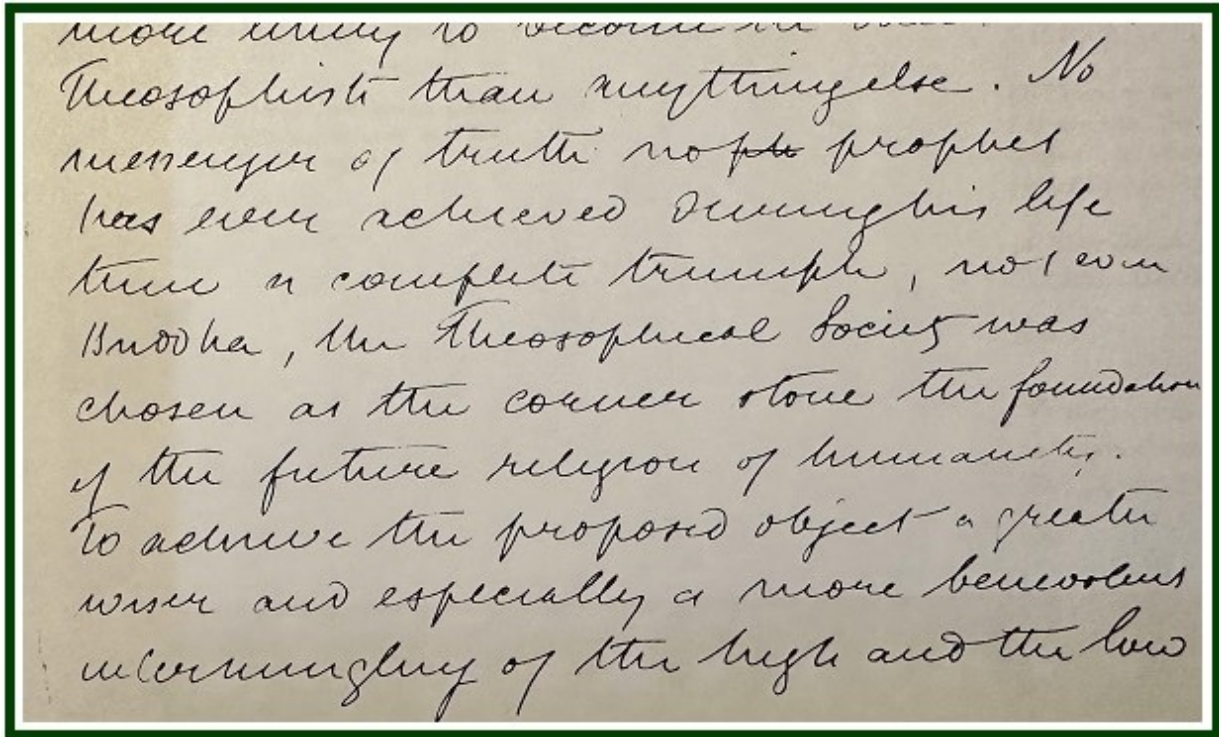 more likely to become
Theosophists than anything else. No
messenger of truth no ph prophet
has ever achieved during his life
time a complete triumph, not even
Buddha, the Theosophical Society was
chosen as the corner stone the foundation
of the future religion of humanity.
To achieve the proposed object a greater
wiser and especially a more benevolent
intermingling of the high and the low